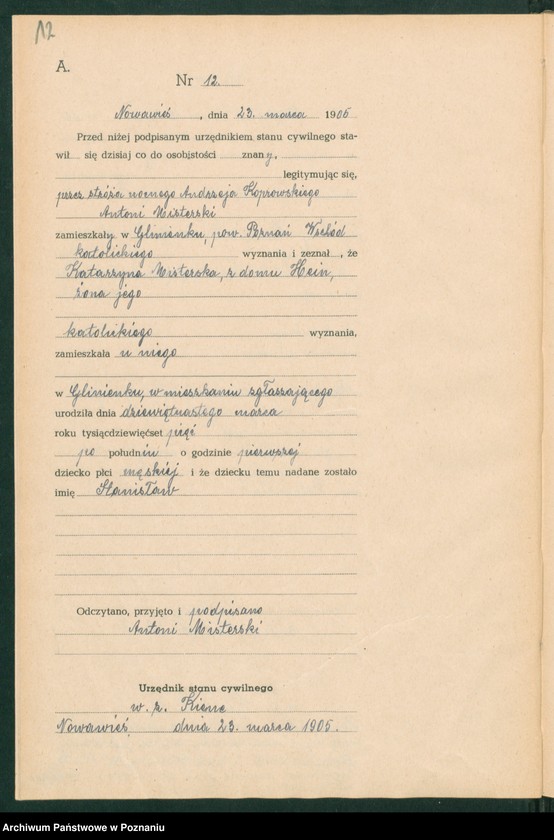 12
A.
Nr 12.
Nowawieś, dnia 23. marca 1905
Przed niżej podpisanym urzędnikiem stanu cywilnego sta-
wił się dzisiaj co do osobistości znany,
legitymując się,
przez stróża nocnego Andrzeja Koprowskiego
Antoni Misterski
zamieszkały w Glinienku, pow. Poznań Wschód
katolickiego wyznania i zeznał, że
Katarzyna Misterska, z domu Hein,
żona jego
katolickiego wyznania,
zamieszkała u niego
w Glinienku, w mieszkaniu zgłaszającego
urodziła dnia dziewiętnastego marca
roku tysiącdziewięćset pięć
po południu o godzinie pierwszej
dziecko płci męskiej i że dziecku temu nadane zostało
imię Stanisław
Odczytano, przyjęto i podpisano
Antoni Misterski
Urzędnik stanu cywilnego
w. z. Kiene
Nowawieś, dnia 23. marca 1905.
Archiwum Państwowe w Poznaniu